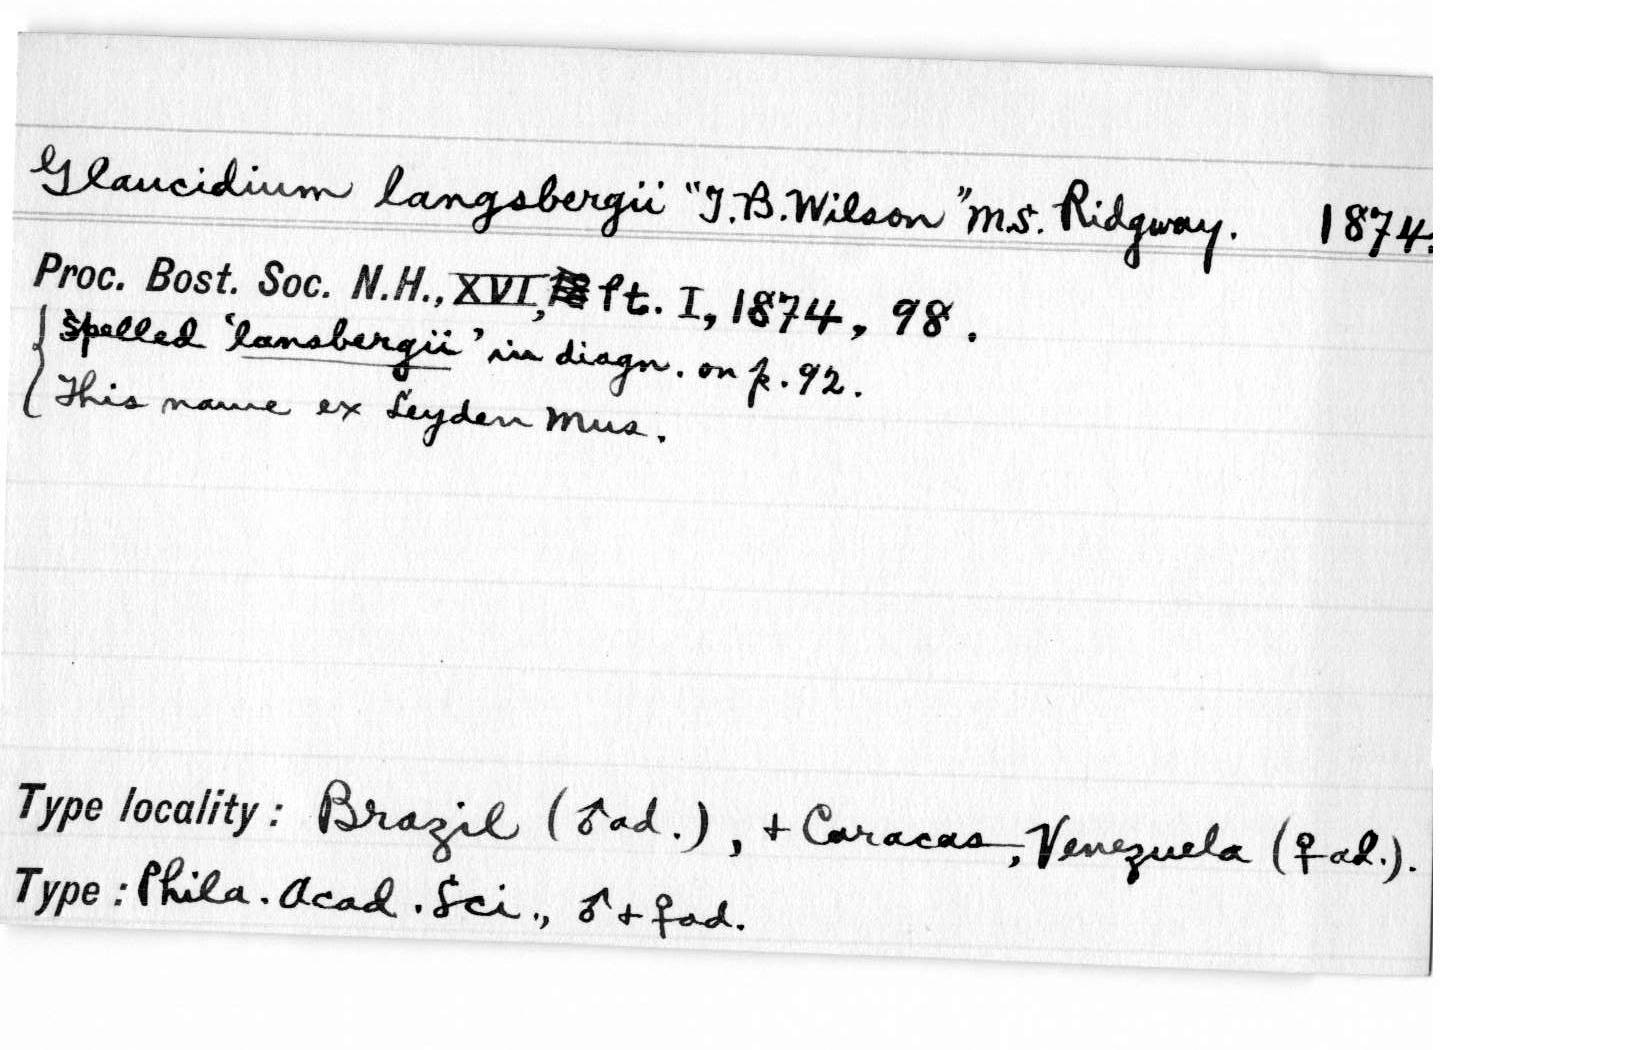 Glaucidium langsbergii "T.B.Wilson" MS. Ridgway. 1874.
Proc. Bost. Soc. N.H., XVI, pt. I, 1874, 98.
Spelled 'lansbergii' in diagn. on p. 92.
This name ex Leyden Mus.
Type locality: Brazil (♂ad.), + Caracas, Venezuela (♀ad.).
Type: Phila. Acad. Sci., ♂ + ♀ad.